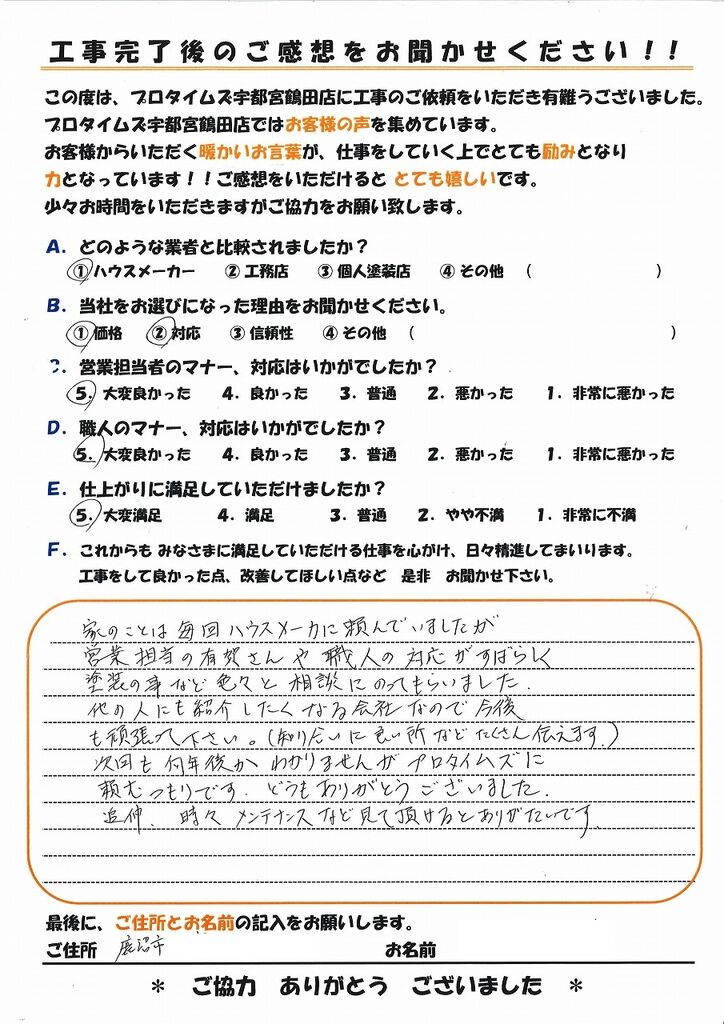 工事完了後のご感想をお聞かせください！！
この度は、プロタイムズ宇都宮鶴田店に工事のご依頼をいただき有難うございました。
プロタイムズ宇都宮鶴田店ではお客様の声を集めています。
お客様からいただく暖かいお言葉が、仕事をしていく上でとても励みとなり
力となっています！！ご感想をいただけると とても嬉しいです。
少々お時間をいただきますがご協力をお願い致します。
A. どのような業者と比較されましたか？
①ハウスメーカー ②工務店 ③個人塗装店 ④その他 （ ）
B. 当社をお選びになった理由をお聞かせください。
①価格 ②対応 ③信頼性 ④その他 （ ）
C. 営業担当者のマナー、対応はいかがでしたか？
5. 大変良かった 4. 良かった 3. 普通 2. 悪かった 1. 非常に悪かった
D. 職人のマナー、対応はいかがでしたか？
5. 大変良かった 4. 良かった 3. 普通 2. 悪かった 1. 非常に悪かった
E. 仕上がりに満足していただけましたか？
5. 大変満足 4. 満足 3. 普通 2. やや不満 1. 非常に不満
F. これからも みなさまに満足していただける仕事を心がけ、日々精進してまいります。
工事をして良かった点、改善してほしい点など 是非 お聞かせ下さい。
家のことは毎回ハウスメーカに頼んでいましたが
営業担当の有賀さんや職人の対応がすばらしく
塗装の事など色々と相談にのってもらいました.
他の人にも紹介したくなる会社なので今後
も頑張って下さい。(知り合いに良い所などたくさん伝えます.)
次回も何年後かわかりませんがプロタイムズに
頼むつもりです. どうもありがとうございました.
追伸. 時々メンテナンスなど見て頂けるとありがたいです.
最後に、ご住所とお名前の記入をお願いします。
ご住所 鹿沼市 お名前
＊ ご協力 ありがとう ございました ＊